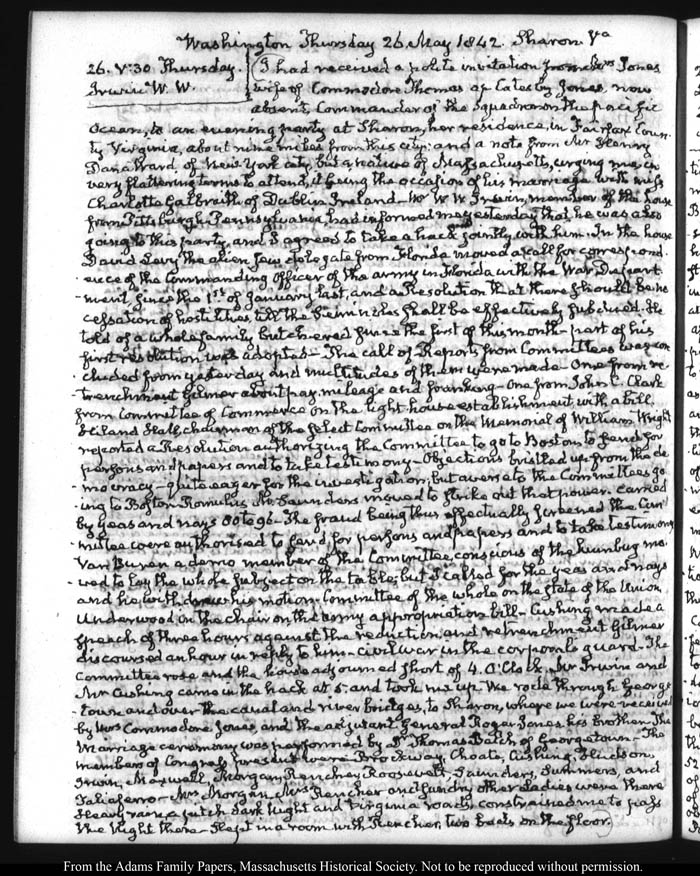 Washington Thursday 26. May 1842. Sharon Va
26. V:30 Thursday. I had received a polite invitation from Mrs Jones
Irwin W. W. wife of Commodore Thomas ap Catesby Jones, now
absent, Commander of the Squadron on the pacific
Ocean, to an evening party at Sharon, her residence, in Fairfax Coun-
ty Virginia, about nine miles from this city: and a note from Mr Henry
Dana Ward of New-York city, but a native of Massachusetts, urging me in
very flattering terms to attend, it being the occasion of his marriage with Miss
Charlotte Galbraith of Dublin Ireland— Mr W. W. Irwin, member of the house
from Pittsburgh Pennsylvania had informed me yesterday that he was also
going to this party, and I agreed to take a hack jointly with him. In the house
David Levy the alien Jew delegate from Florida moved a call for correspond-
ence of the Commanding Officer of the army in Florida with the War Depart-
ment since the 1st of January last, and a Resolution that there should be no
cessation of hostilities till the Seminoles shall be effectively subdued. He
told of a whole family butchered since the first of this month— part of his
first resolution was adopted— The call of Reports from Committees was con-
cluded from yesterday and multitudes of them were made— One from re-
trenchment Gilmer about pay, mileage and franking— One from John C. Clark
from Committee of Commerce on the light-house establishment with a bill.
Hiland Hall, chairman of the select Committee on the Memorial of William Wright
reported a Resolution authorizing the Committee to go to Boston, to send for
persons and papers and to take testimony— Objections bristled up from the de-
mocracy— quite eager for the investigation; but averse to the Committees go-
ing to Boston. Romulus M. Saunders moved to strike out that power. carried
by yeas and nays 00 to 96. The fraud being thus effectually screened the Com-
mittee were authorised to send for persons and papers and to take testimony
Van Buren a demo member of the Committee, conscious of the humbug mo-
ved to lay the whole subject on the table; but I called for the yeas and nays
and he withdrew his motion. Committee of the whole on the state of the Union,
Underwood in the chair on the army appropriation bill— Cushing made a
speech of three hours against the reduction, and retrenchment Gilmer
discoursed an hour in reply to him— civil war in the corporal's guard. The
Committee rose and the house adjourned short of 4. O'Clock. Mr Irwin and
Mr Cushing came in the hack at 5. and took me up. We rode through George-
town and over the canal and river bridges, to Sharon, where we were received
by Mrs Commodore Jones, and the adjutant general Roger Jones his brother. The
Marriage ceremony was performed by Dr Thomas Balch of Georgetown— The
members of Congress present were Brockway, Choate, Cushing, Hudson
Irwin, Maxwell, Morgan, Rencher, Roosevelt, Saunders, Summers, and
Taliaferro— Mrs Morgan, Mrs Rencher and sundry other Ladies were there
Heavy rain, a pitch dark Night and Virginia roads constrained me to pass
the Night there— Slept in a room with Rencher, two beds on the floor.
From the Adams Family Papers, Massachusetts Historical Society. Not to be reproduced without permission.